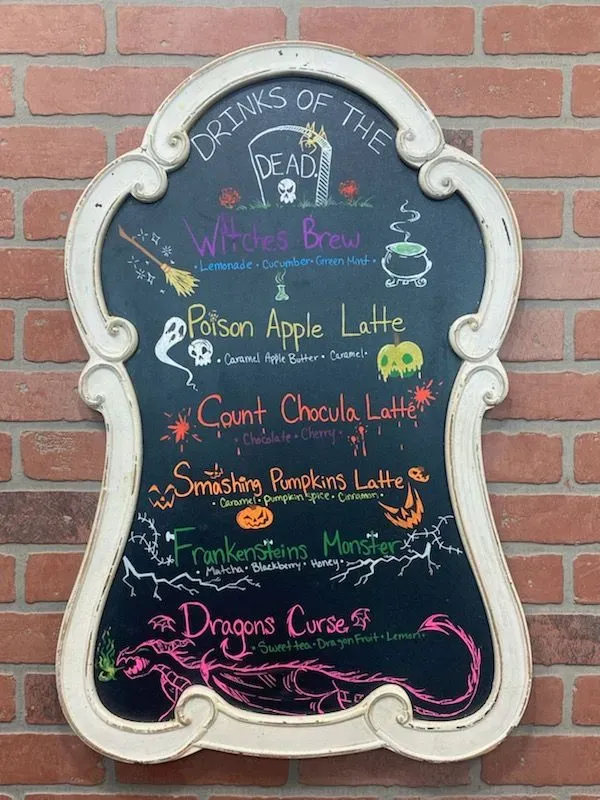 DRINKS OF THE
DEAD.
Witches Brew
• Lemonade • Cucumber • Green Mint •
Poison Apple Latte
• Caramel Apple Butter • Caramel •
Count Chocula Latte
• Chocolate • Cherry •
Smashing Pumpkins Latte
• Caramel • Pumpkin Spice • Cinnamon •
Frankensteins Monster
Matcha • Blackberry • Honey •
Dragons Curse
• Sweet tea • Dragon Fruit • Lemon •